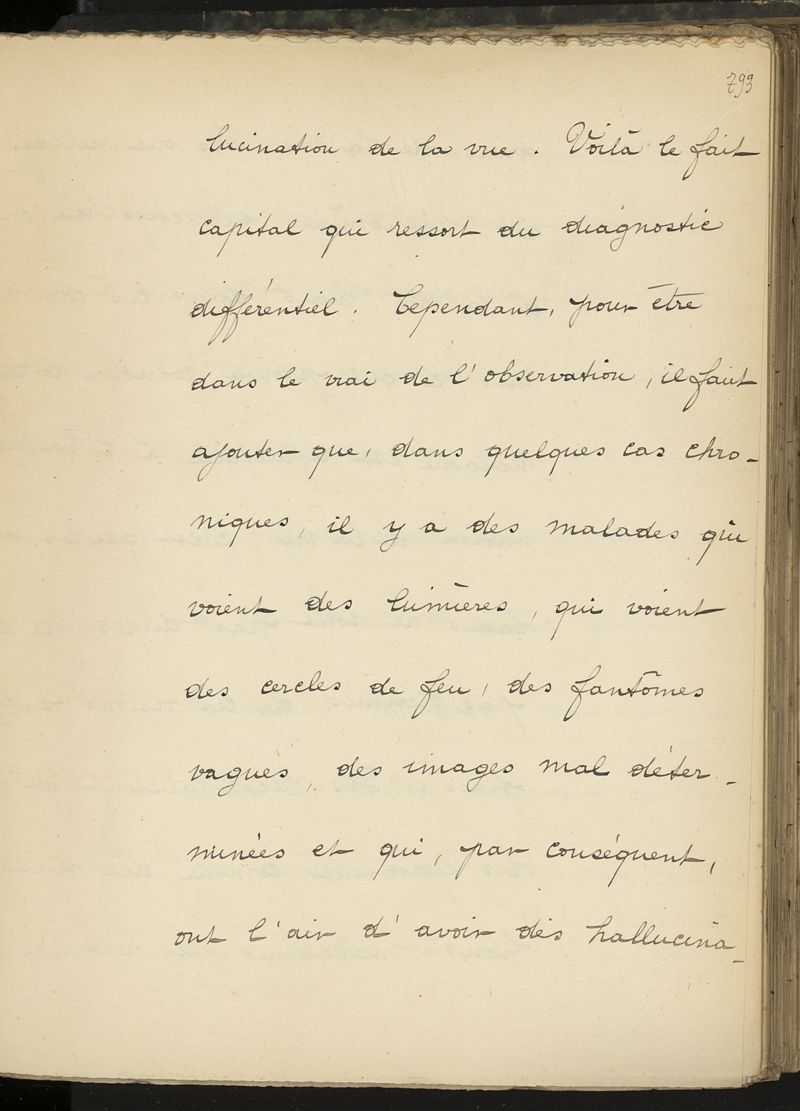 793
lucination de la vue. Voilà le fait
capital qui ressort du diagnostic
différentiel. Cependant, pour être
dans le vrai de l'observation, il faut
ajouter que, dans quelques cas chro-
niques, il y a des malades qui
voient des lumières, qui voient
des cercles de feu, des fantômes
vagues, des images mal déter-
minées et qui, par conséquent,
ont l'air d'avoir des hallucina-